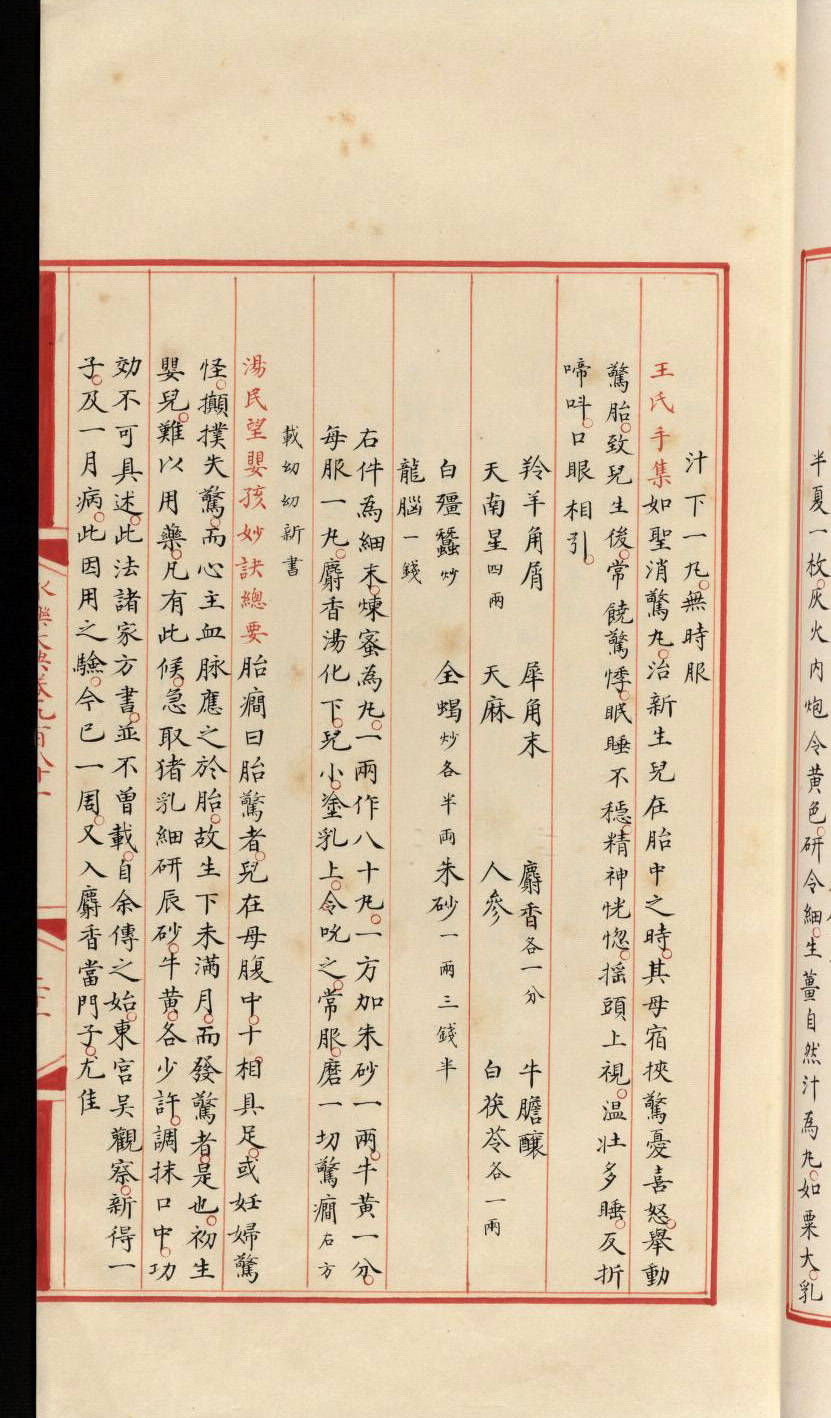 半夏一枚。灰火内炮令黄色。研令細。生薑自然汁為丸。如粟大。乳
汁下一丸。無時服
王氏手集如聖消驚丸。治新生兒在胎中之時。其母宿挾驚憂喜怒。舉動
驚胎。致兒生後。常饒驚悸。眠睡不穩。精神恍惚。揺頭上視。温壯多睡。反折
啼呌。口眼相引。
羚羊角屑 犀角末 麝香各一分 牛膽釀
天南星四兩 天麻 人參 白茯苓各一兩
白殭蠶炒 全蝎炒各半兩 朱砂一兩三錢半
龍腦一錢
右件為細末。煉蜜為丸。一兩作八十丸。一方加朱砂一兩。牛黄一分。
每服一丸。麝香湯化下。兒小。塗乳上。令吮之。常服。磨一切驚癎右方
載幼幼新書
湯民望嬰孩妙訣總要胎癎曰胎驚者。兒在母腹中。十相具足。或妊婦驚
怪。攧撲失驚。而心主血脉應之於胎。故生下未滿月。而發驚者。是也。初生
嬰兒。難以用藥。凡有此候。急取猪乳細研辰砂。牛黄。各少許。調抹口中。功
効不可具述。此法諸家方書。並不曾載。自余傳之始。東宫吴觀察。新得一
子。及一月病。此因用之驗。今已一周。又入麝香當門子。尤佳
永樂大典卷九百八十一